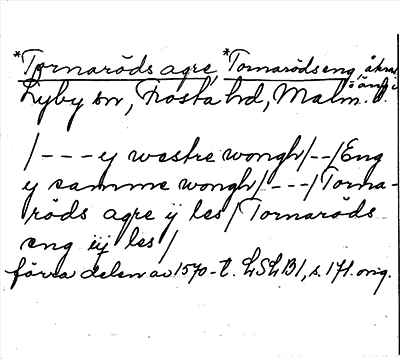 *Tornaröds agre, *Tornarödseng, åkrar
o äng i
Lyby sn, Frosta hd, Malm. l.
/---y westre wongh/--/Eng
y samme wongh/---/Torna-
röds agre ij les/Tornaröds
eng iij les/
förra delen av 1570-t. LSLB1, s. 171. orig.